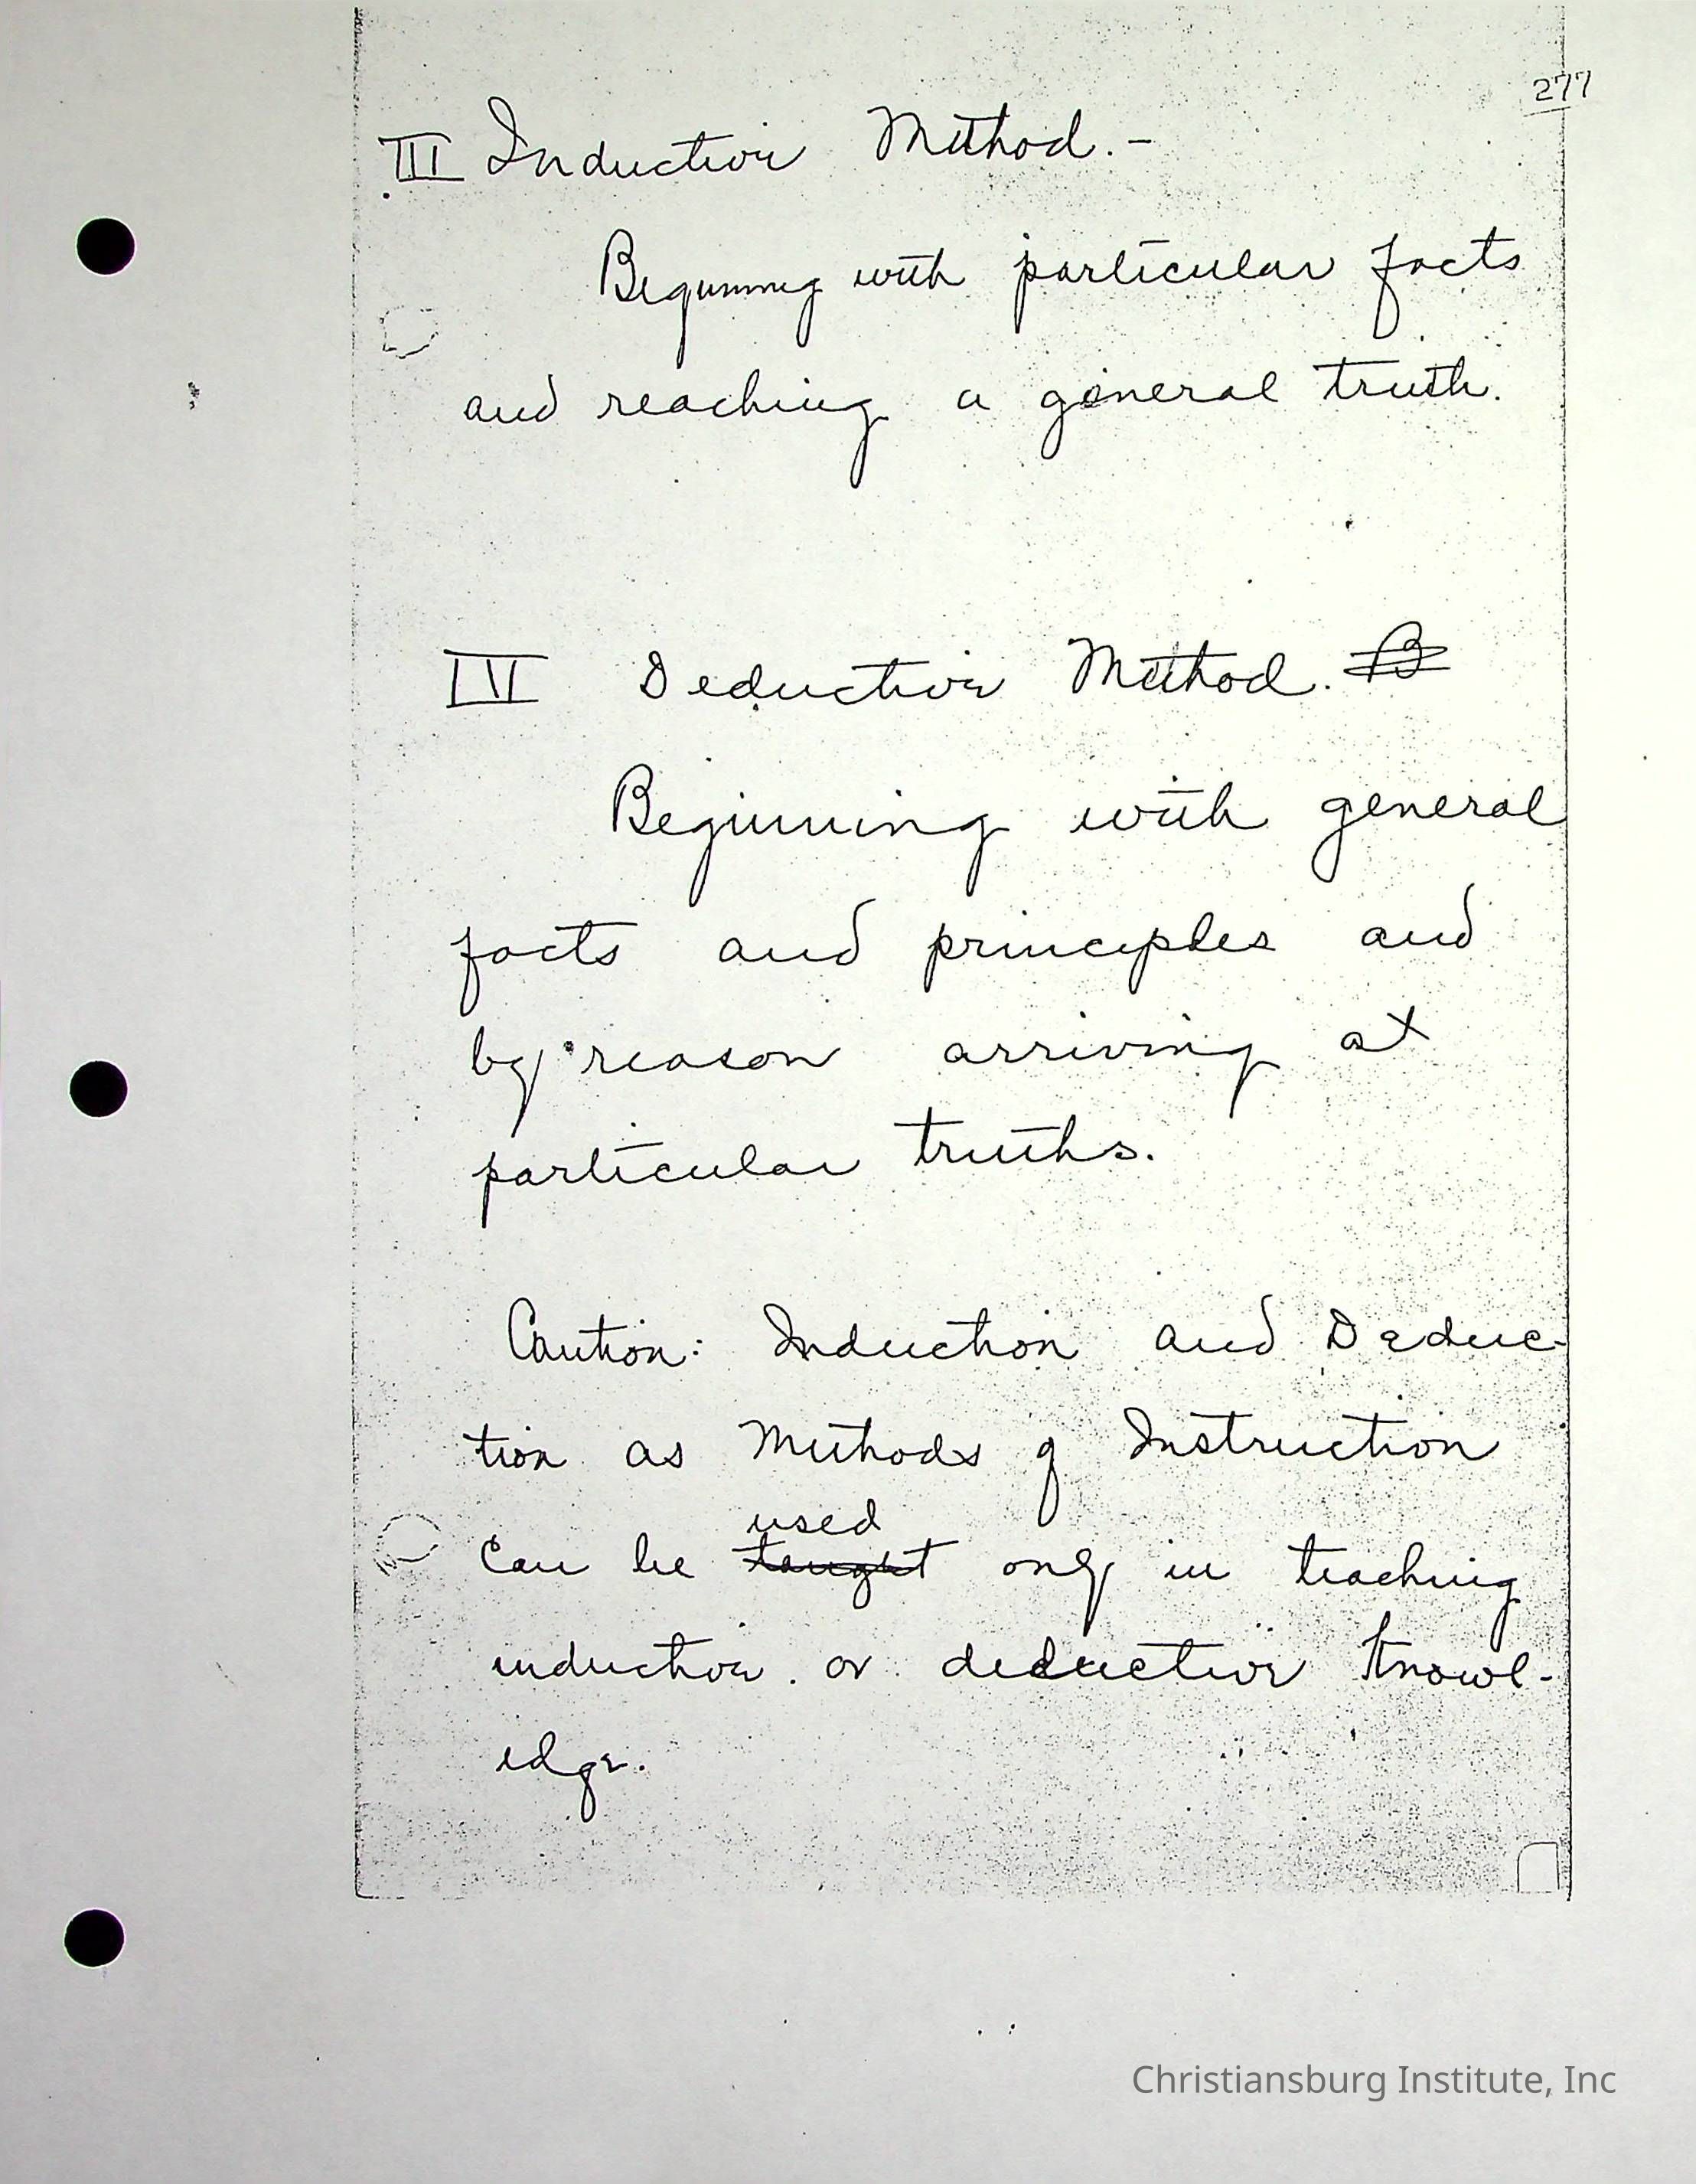 277
III Inductive Method. -
Beginning with particular facts
and reaching a general truth.
IV Deductive Method. B
Beginning with general
facts and principles and
by reason arriving at
particular truths.
Caution: Induction and Deduc-
tion as Methods of Instruction
used
can be taught only in teaching
inductive or deductive knowl-
edge.
Christiansburg Institute, Inc